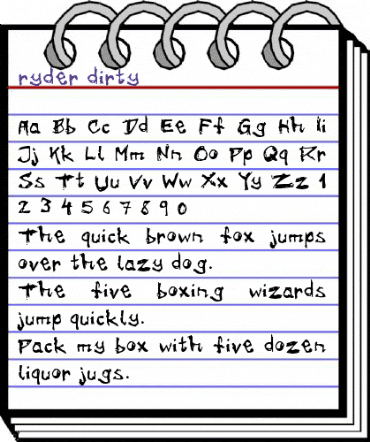 ryder dirty
Aa Bb Cc Dd Ee Ff Gg Hh Ii
Jj Kk Ll Mm Nn Oo Pp Qq Rr
Ss Tt Uu Vv Ww Xx Yy Zz 1
2 3 4 5 6 7 8 9 0
The quick brown fox jumps
over the lazy dog.
The five boxing wizards
jump quickly.
Pack my box with five dozen
liquor jugs.